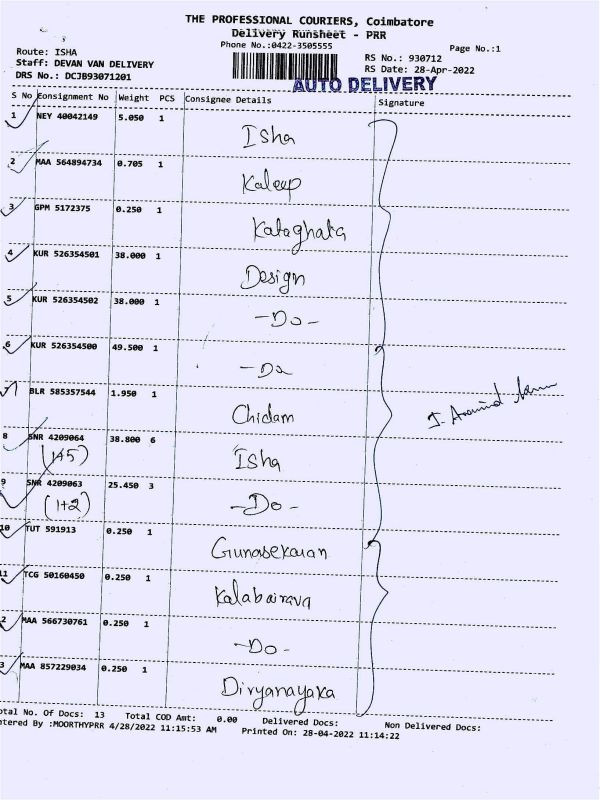 THE PROFESSIONAL COURIERS, Coimbatore
Delivery Runsheet - PRR
Phone No.:0422-3505555
Page No.:1
Route: ISHA
Staff: DEVAN VAN DELIVERY
DRS No.: DCJB93071201
RS No.: 930712
RS Date: 28-Apr-2022
AUTO DELIVERY
S No Consignment No Weight PCS Consignee Details Signature
1 NEY 40042149 5.050 1 Isha
2 MAA 564894734 0.705 1 Kaleep
3 GPM 5172375 0.250 1 Kataghata
4 KUR 526354501 38.000 1 Design
5 KUR 526354502 38.000 1 -Do-
6 KUR 526354500 49.500 1 -Do
7 BLR 585357544 1.950 1 Chidam
8 SNR 4209064 38.800 6 Isha
(1+5)
9 SNR 4209063 25.450 3 -Do-
(1+2)
10 TUT 591913 0.250 1 Gunasekaran
11 TCG 50160450 0.250 1 Kalabairava
2 MAA 566730761 0.250 1 -Do-
3 MAA 857229034 0.250 1 Divyanayaka
otal No. Of Docs: 13 Total COD Amt: 0.00 Delivered Docs: Non Delivered Docs:
ntered By :MOORTHYPRR 4/28/2022 11:15:53 AM Printed On: 28-04-2022 11:14:22